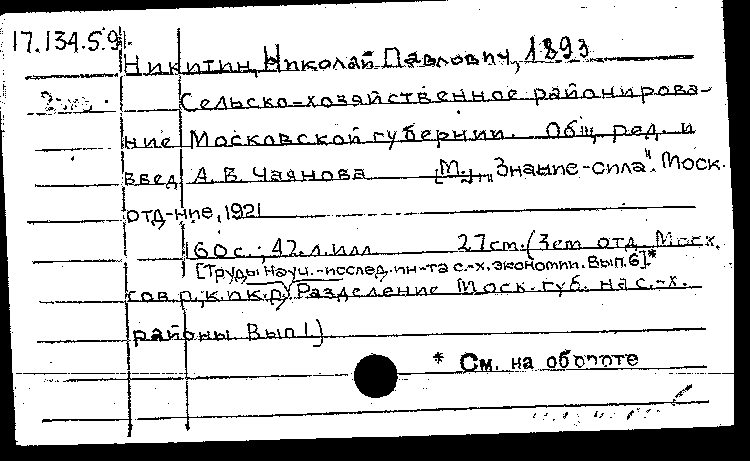 17.134.5.91.
Никитин, Николай Павлович, 1893
Сельско-хозяйственное районирова-
ние Московской губернии. Общ. ред. и
введ. А. В. Чаянова [М.], „Знание-сила". Моск.
отд-ние, 1921
160 с.; 42 л. илл. 27 см. (Зем. отд. Моск.
[Труды Науч.-исслед. ин-та с.-х. экономии. Вып. 6]*
сов. р., к. и к. д. Разделение Моск. губ. на с.-х.
районы. Вып 1.)
* См. на обороте